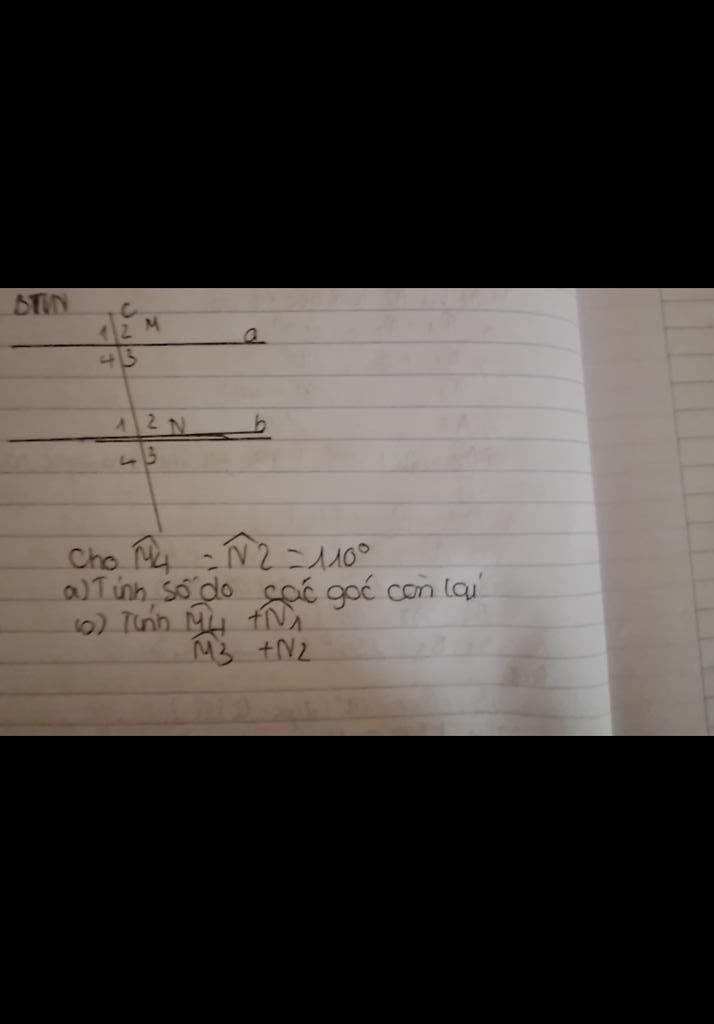 BTVN
c
1 2 M
a
4 3
1 2 N
b
4 3
Cho M̂4 = N̂2 = 110°
a) Tính số đo các góc còn lại
b) Tính M̂4 + N̂1
M̂3 + N2